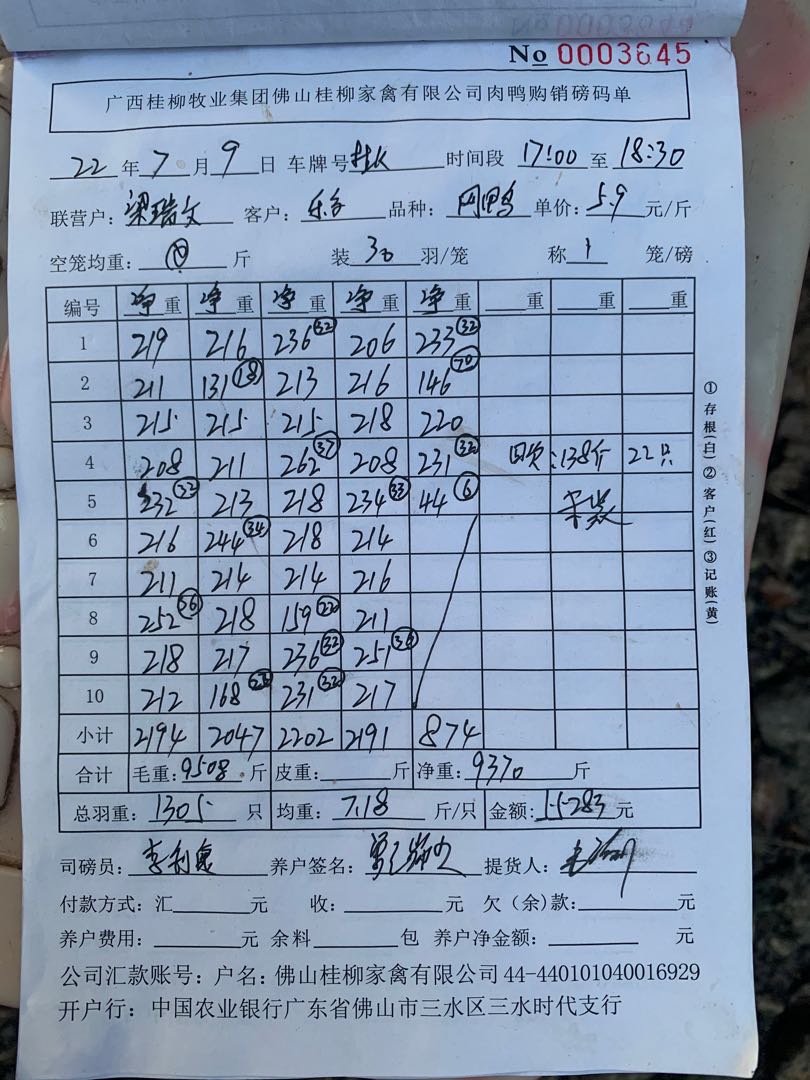 No 0003645
广西桂柳牧业集团佛山桂柳家禽有限公司肉鸭购销磅码单
22 年 7 月 9 日 车牌号 时间段 17:00 至 18:30
联营户: 梁瑞文 客户: 乐多 品种: 单价: 5.9 元/斤
空笼均重: 斤 装 30 羽/笼 称 1 笼/磅
编号 净重 净重 净重 净重 净重 重 重 重
1 219 216 236 (32) 206 233 (32)
2 211 131 (18) 213 216 146 (20)
3 215 215 215 218 220
4 208 211 262 (37) 208 231 (32) 回货:138斤 22只
5 232 (32) 213 218 234 (33) 44 (6)
6 216 244 (34) 218 214
7 211 214 214 216
8 252 (36) 218 159 (22) 211
9 218 217 236 (32) 251 (36)
10 212 168 231 (32) 217
小计 2194 2047 2202 2191 874
合计 毛重: 9508 斤 皮重: 斤 净重: 9370 斤
总羽重: 1305 只 均重: 7.18 斤/只 金额: 55283 元
司磅员: 养户签名: 提货人:
付款方式: 汇 元 收: 元 欠(余)款: 元
养户费用: 元 余料 包 养户净金额: 元
公司汇款账号: 户名: 佛山桂柳家禽有限公司 44-440101040016929
开户行: 中国农业银行广东省佛山市三水区三水时代支行
①存根(白)②客户(红)③记账(黄)